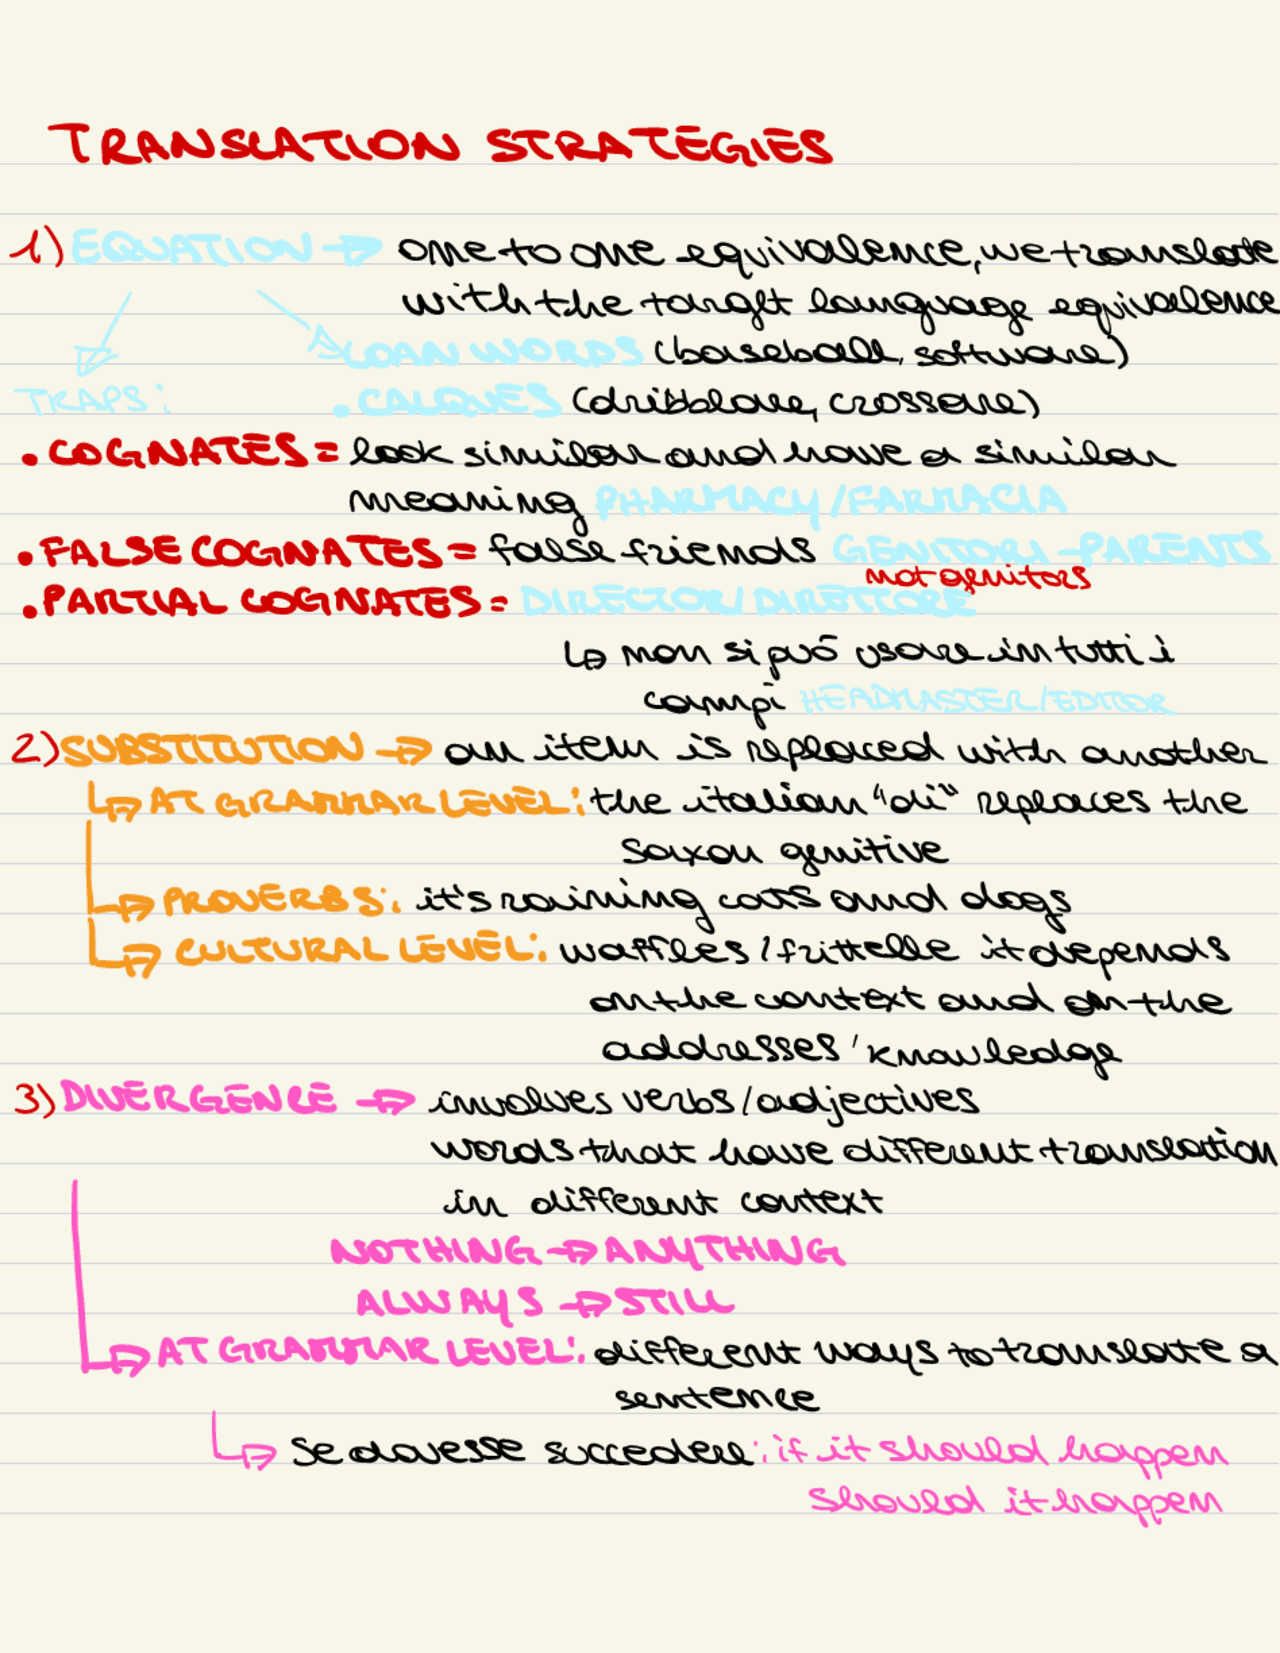 TRANSLATION STRATEGIES
1) EQUATION → one to one equivalence, we translate
with the target language equivalence
LOAN WORDS (baseball, software)
TRAPS: • CALQUES (dribblare, crossare)
• COGNATES = look similar and have a similar
meaning PHARMACY/FARMACIA
• FALSE COGNATES = false friends GENITORI-PARENTS
not genitors
• PARTIAL COGNATES = DIRECTOR/DIRETTORE
↳ non si può usare in tutti i
campi HEADMASTER/EDITOR
2) SUBSTITUTION → an item is replaced with another
↳ AT GRAMMAR LEVEL: the italian "di" replaces the
saxon genitive
↳ PROVERBS: it's raining cats and dogs
↳ CULTURAL LEVEL: waffles/frittelle it depends
on the context and on the
addresses' knowledge
3) DIVERGENCE → involves verbs/adjectives
words that have different translation
in different context
NOTHING → ANYTHING
ALWAYS → STILL
↳ AT GRAMMAR LEVEL: different ways to translate a
sentence
↳ se dovesse succedere: if it should happen
should it happen